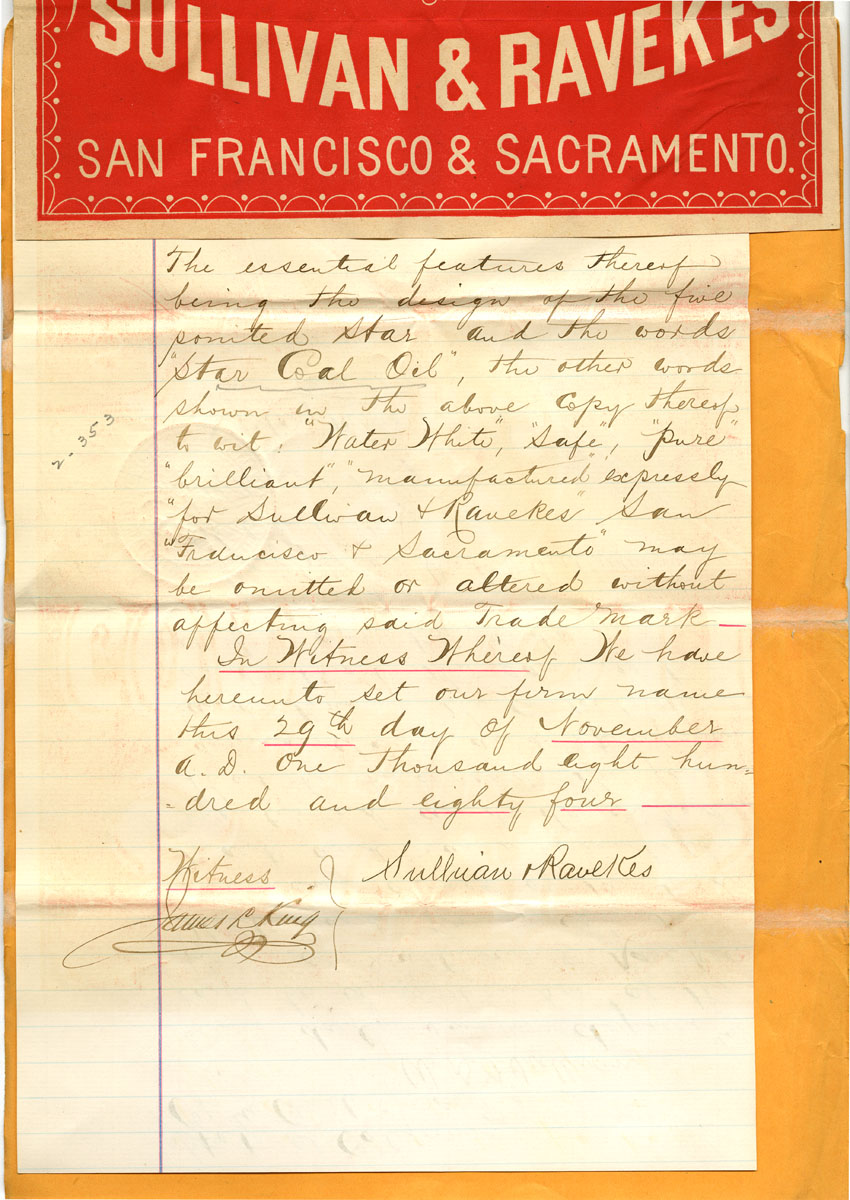 SULLIVAN & RAVEKES
SAN FRANCISCO & SACRAMENTO.
The essential features thereof
being the design of the five
pointed Star and the words
"Star Coal Oil", the other words
shown in the above Copy thereof
to wit: "Water White", "Safe", "pure"
"brilliant", "manufactured expressly
"for Sullivan & Ravekes" San
"Francisco & Sacramento" may
be omitted or altered without
affecting said Trade Mark —
In Witness Whereof We have
hereunto set our firm name
this 29th day of November
A. D. One Thousand eight hun-
-dred and eighty four
Witness
Sullivan & Ravekes
James L King
2-353